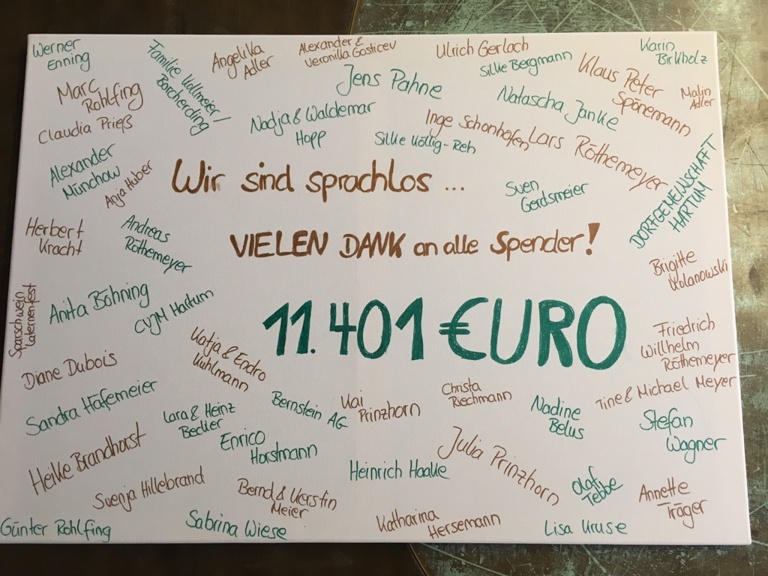 Werner
Enning
Familie Vollmeier/
Borcherding
Angelika
Adler
Alexander &
Veronika Gosticev
Ulrich Gerlach
Silke Bergmann
Karin
Birkholz
Marc
Rohlfing
Jens Pahne
Klaus Peter
Spönemann
Malin
Adler
Claudia Prieß
Nadja & Waldemar
Hopp
Natascha Janke
Inge Schonhofen
Lars Röthemeyer
Silke Kölling-Reh
Alexander
Münchow
Anja Huber
Wir sind sprachlos ...
Sven
Gerdsmeier
DORFGEMEINSCHAFT
HARTUM
Herbert
Kracht
Andreas
Röthemeyer
VIELEN DANK an alle Spender!
Brigitte
Wolanowski
Sparschwein
Laternenfest
Anita Böhning
CVJM Hartum
11.401 €URO
Friedrich
Willhelm
Röthemeyer
Diane Dubois
Katja & Endro
Kuhlmann
Tine & Michael Meyer
Sandra Häfemeier
Lara & Heinz
Becker
Bernstein AG
Kai
Prinzhorn
Christa
Riechmann
Nadine
Belus
Stefan
Wagner
Heike Brandhorst
Enrico
Horstmann
Heinrich Haake
Julia Prinzhorn
Olaf
Tebbe
Annette
Träger
Svenja Hillebrand
Bernd & Kerstin
Meier
Günter Rohlfing
Sabrina Wiese
Katharina
Hersemann
Lisa Kruse